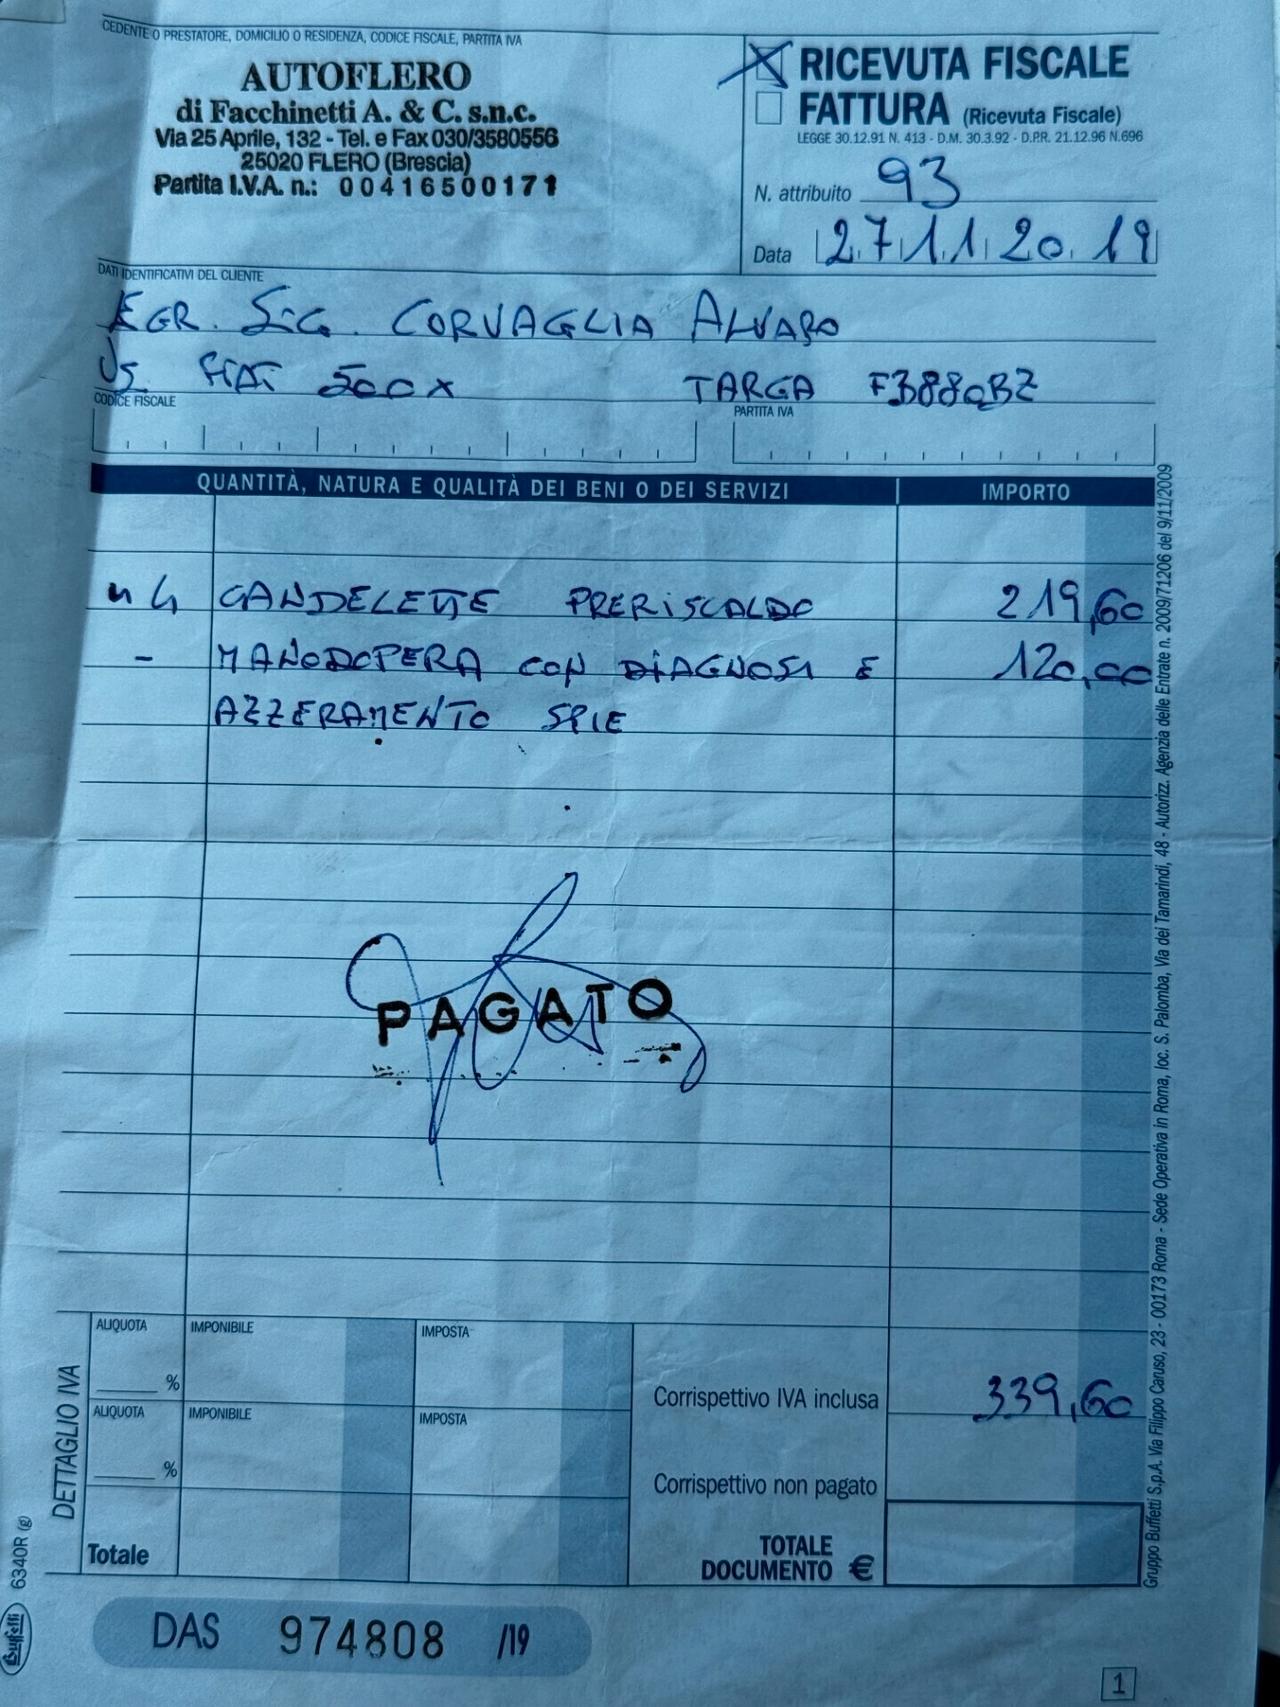 CEDENTE O PRESTATORE, DOMICILIO O RESIDENZA, CODICE FISCALE, PARTITA IVA
AUTOFLERO
di Facchinetti A. & C. s.n.c.
Via 25 Aprile, 132 - Tel. e Fax 030/3580556
25020 FLERO (Brescia)
Partita I.V.A. n.: 00416500171
RICEVUTA FISCALE
FATTURA (Ricevuta Fiscale)
LEGGE 30.12.91 N. 413 - D.M. 30.3.92 - D.P.R. 21.12.96 N.696
N. attribuito 93
Data 27 11 20 19
DATI IDENTIFICATIVI DEL CLIENTE
EGR. SIG. CORVAGLIA ALVARO
VS FIAT 500X TARGA FB880BZ
CODICE FISCALE PARTITA IVA
QUANTITÀ, NATURA E QUALITÀ DEI BENI O DEI SERVIZI IMPORTO
n 4 CANDELETTE PRERISCALDO 219,60
- MANODOPERA CON DIAGNOSI E 120,00
AZZERAMENTO SPIE
PAGATO
DETTAGLIO IVA
ALIQUOTA IMPONIBILE IMPOSTA
% Corrispettivo IVA inclusa 339,60
ALIQUOTA IMPONIBILE IMPOSTA
% Corrispettivo non pagato
Totale TOTALE DOCUMENTO €
DAS 974808 /19
1
6340R (g)
Buffetti
Gruppo Buffetti S.p.A. Via Filippo Caruso, 23 - 00173 Roma - Sede Operativa in Roma, loc. S. Palomba, Via dei Tamarindi, 48 - Autorizz. Agenzia delle Entrate n. 2009/71206 del 9/11/2009